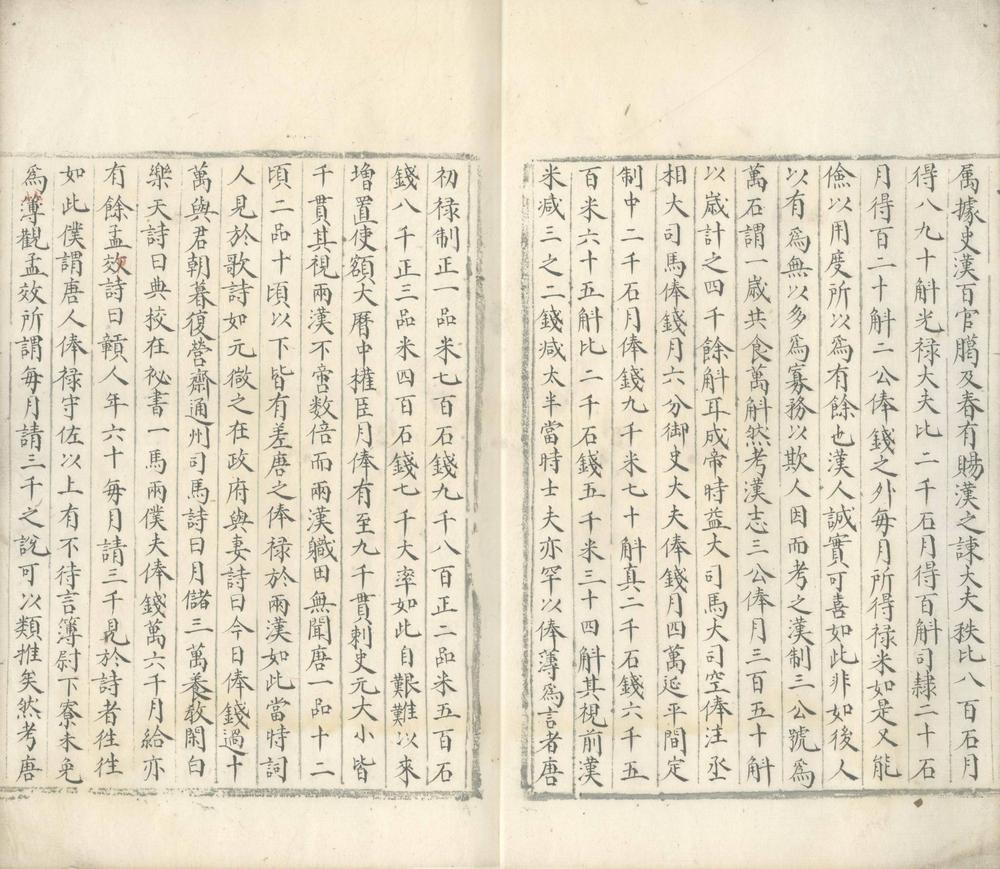 属據史漢百官臈及春有賜漢之諌大夫秩比八百石月
得八九十斛光禄大夫比二千石月得百斛司隸二千石
月得百二十斛二公俸錢之外毎月所得禄米如是又能
儉以用度所以爲有餘也漢人誠實可喜如此非如後人
以有爲無以多爲寡務以欺人因而考之漢制三公號爲
萬石謂一歳共食萬斛然考漢志三公俸月三百五十斛
以歳計之四千餘斛耳成帝時益大司馬大司空俸注丞
相大司馬俸錢月六分御史大夫俸錢月四萬延平間定
制中二千石月俸錢九千米七十斛真二千石錢六千五
百米六十五斛比二千石錢五千米三十四斛其視前漢
米减三之二錢减太半當時士夫亦罕以俸薄爲言者唐
初禄制正一品米七百石錢九千八百正二品米五百石
錢八千正三品米四百石錢七千大率如此自艱難以來
増置使額大曆中權臣月俸有至九千貫刺史元大小皆
千貫其視兩漢不啻数倍而兩漢職田無聞唐一品十二
頃二品十頃以下皆有差唐之俸禄於兩漢如此當時詞
人見於歌詩如元微之在政府與妻詩曰今日俸錢過十
萬與君朝暮復營齋通州司馬詩曰月儲三萬養教閑白
樂天詩曰典校在祕書一馬兩僕夫俸錢萬六千月給亦
有餘孟效詩曰顇人年六十毎月請三千見於詩者徃徃
如此僕謂唐人俸禄守佐以上有不待言簿尉下寮未免
爲簿觀孟效所謂毎月請三千之說可以類推矣然考唐